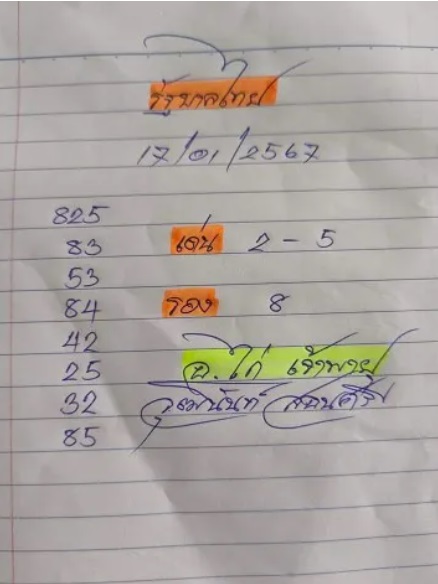 รัฐบาลไทย
17/01/2567
825
83 เด่น 2 - 5
53
84 รอง 8
42
25 อ.ไก่ เจ้าพายุ
32
85